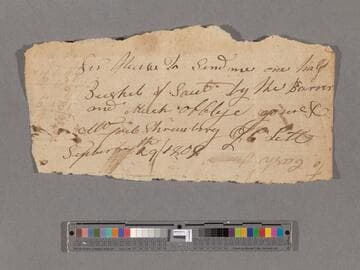 Sir Please to Send me one half
Bushel of Saut by the Barrer
and Much Obblige yours &
Shrewsbry
September 29th 1808